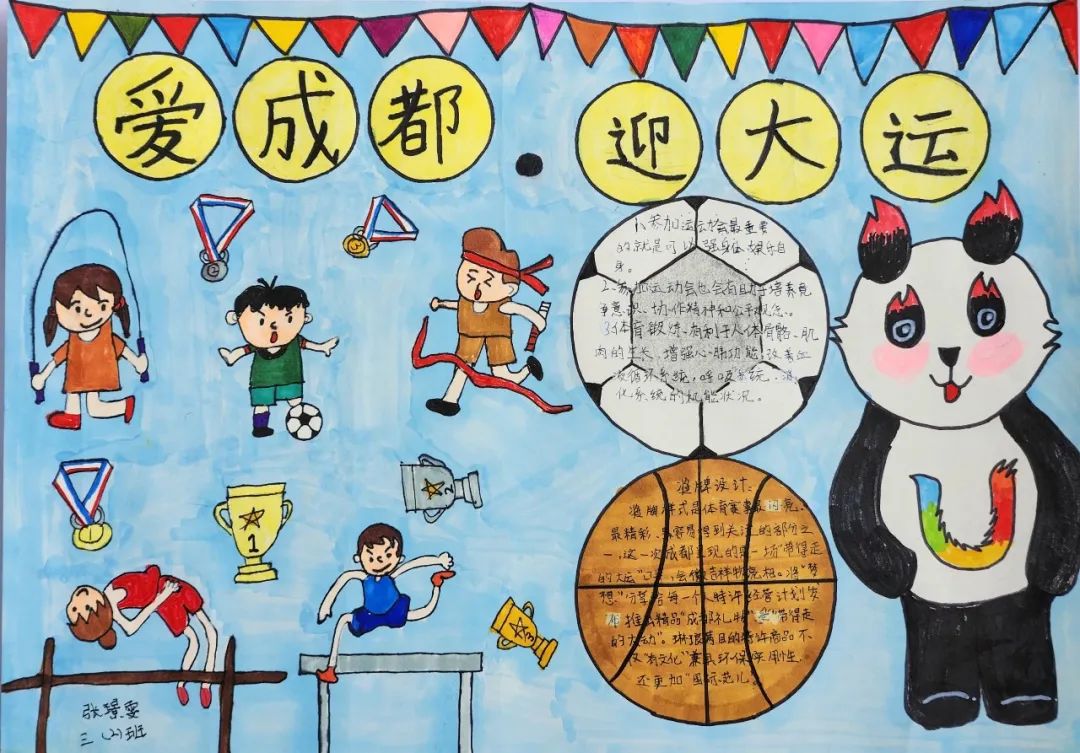 爱成都·迎大运
1、参加运动会最重要
的就是可以强身体娱乐自
身。
2、参加运动会也会有助于培养竞
争意识、协作精神和公平概念。
3、体育锻炼有利于人体骨骼、肌
肉的生长,增强心肺功能,改善血
液循环系统,呼吸系统,消
化系统的机能状况。
2
1
3
奖牌设计:
奖牌样式是体育赛事最闪亮、
最精彩、容易得到关注的部分之
一,这一次成都呈现的是一场"带得走
的大运"会像吉祥物亮相。将"梦
想"分享给每一个人特许经营计划
推出精品"成都礼物""带得走
的大运"。琳琅满目的特许商品不
仅"有文化"兼具环保实用性,
还更加"国际范儿"。
张璟雯
三(2)班